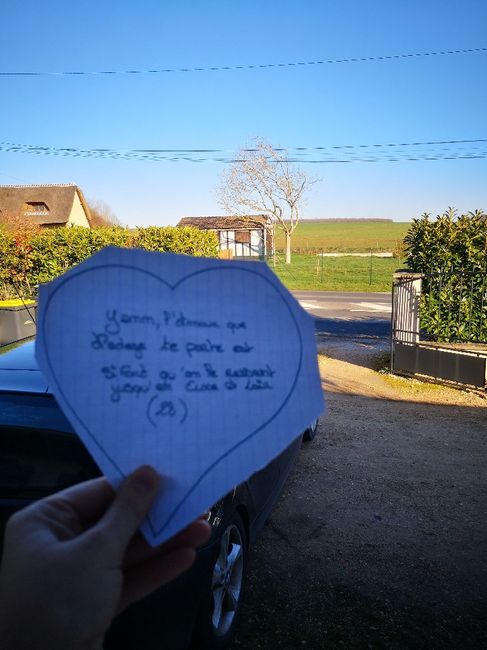 Yamm, l'amour que
Nadege te porte est
si fort qu'on le ressent
jusqu'en Eure et Loir
(28)